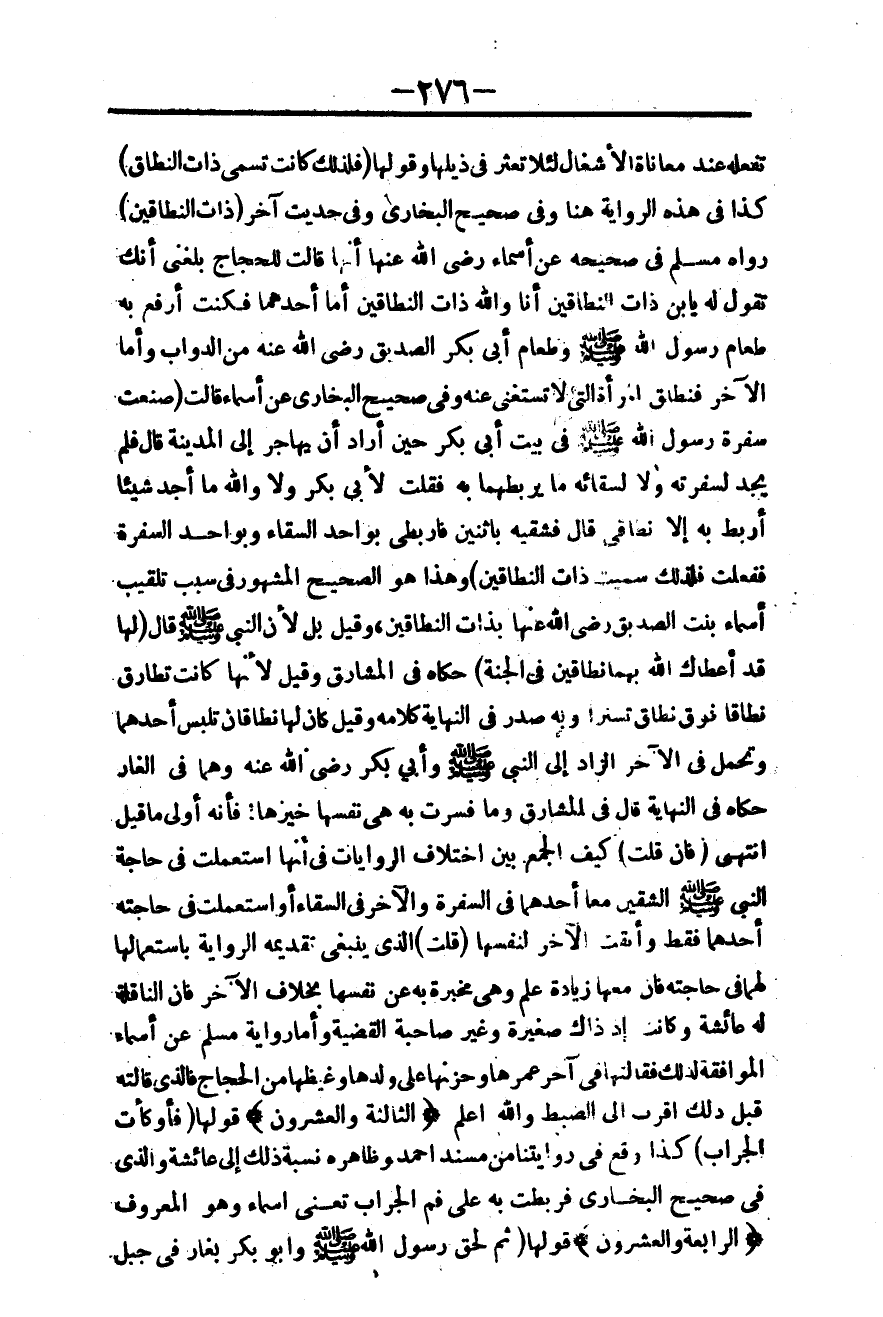 -٢٧٦-
تفعله عند معاناة الأشغال لئلا تعثر فى ذيلها وقولها (فلذلك كانت تسمى ذات النطاق)
كذا فى هذه الرواية هنا وفى صحيح البخارى وفى حديث آخر (ذات النطاقين)
رواه مسلم فى صحيحه عن أسماء رضى الله عنها أنها قالت للحجاج بلغنى أنك
تقول له يابن ذات النطاقين أنا والله ذات النطاقين أما أحدهما فكنت أرفع به
طعام رسول الله ﷺ وطعام أبى بكر الصديق رضى الله عنه من الدواب وأما
الآخر فنطاق المرأة التى لا تستغنى عنه وفى صحيح البخارى عن أسماء قالت (صنعت
سفرة رسول الله ﷺ فى بيت أبى بكر حين أراد أن يهاجر إلى المدينة قال فلم
يجد لسفرته ولا لسقائه ما يربطهما به فقلت لأبي بكر ولا والله ما أجد شيئا
أربط به إلا نطاقي قال فشقيه باثنين فاربطى بواحد السقاء وبواحد السفرة
ففعلت فلذلك سميت ذات النطاقين) وهذا هو الصحيح المشهور فى سبب تلقيب
أسماء بنت الصديق رضى الله عنها بذات النطاقين، وقيل بل لأن النبي ﷺ قال (لها
قد أعطاك الله بهما نطاقين فى الجنة) حكاه فى المشارق وقيل لأنها كانت تطارق
نطاقا فوق نطاق تسترا وبه صدر فى النهاية كلامه وقيل كان لها نطاقان تلبس أحدهما
وتحمل فى الآخر الزاد إلى النبي ﷺ وأبي بكر رضى الله عنه وهما فى الغار
حكاه فى النهاية قال فى المشارق وما فسرت به هى نفسها خيزها؛ فأنه أولى ماقيل
انتهى (فان قلت) كيف الجمع بين اختلاف الروايات فى أنها استعملت فى حاجة
النبي ﷺ الشقين معا أحدهما فى السفرة والآخر فى السقاء أو استعملت فى حاجته
أحدهما فقط وأبقت الآخر لنفسها (قلت) الذى ينبغى تقديمه الرواية باستعمالها
لهما فى حاجته فان معها زيادة علم وهى مخبرة به عن نفسها بخلاف الآخر فان الناقلة
له عائشة وكانت إذ ذاك صغيرة وغير صاحبة القضية وأما رواية مسلم عن أسماء
الموافقة لذلك فقالتها فى آخر عمرها وحزنها على ولدها وغيظها من الحجاج فالذى قالته
قبل ذلك اقرب الى الضبط والله اعلم ﴿ الثالثة والعشرون ﴾ قولها (فأوكأت
الجراب) كذا وقع فى روايتنا من مسند احمد وظاهره نسبة ذلك إلى عائشة والذى
فى صحيح البخارى فربطت به على فم الجراب تعنى اسماء وهو المعروف
﴿ الرابعة والعشرون ﴾ قولها (ثم لحق رسول الله ﷺ وابو بكر بغار فى جبل